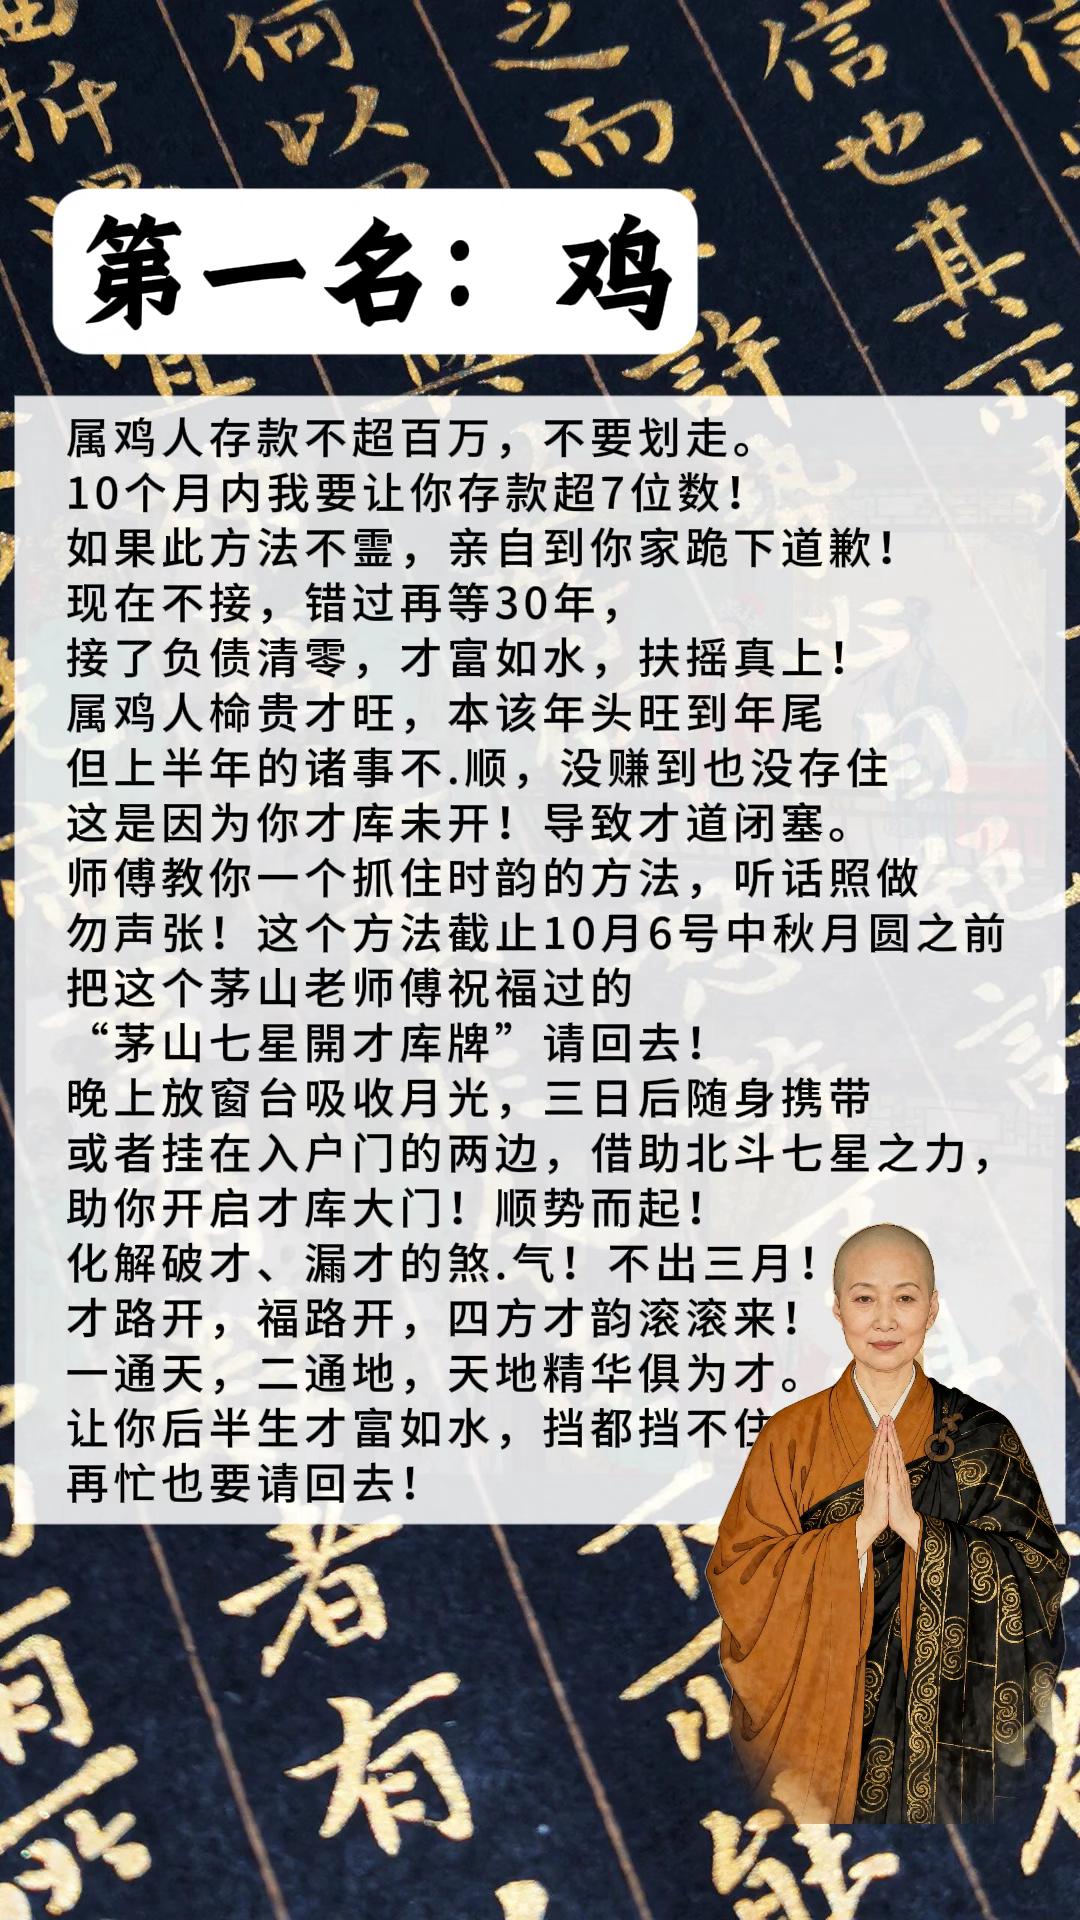 第一名：鸡
属鸡人存款不超百万，不要划走。
10个月内我要让你存款超7位数！
如果此方法不霊，亲自到你家跪下道歉！
现在不接，错过再等30年，
接了负债清零，才富如水，扶摇真上！
属鸡人棆贵才旺，本该年头旺到年尾
但上半年的诸事不.顺，没赚到也没存住
这是因为你才库未开！导致才道闭塞。
师傅教你一个抓住时韵的方法，听话照做
勿声张！这个方法截止10月6号中秋月圆之前
把这个茅山老师傅祝福过的
“茅山七星開才库牌”请回去！
晚上放窗台吸收月光，三日后随身携带
或者挂在入户门的两边，借助北斗七星之力，
助你开启才库大门！顺势而起！
化解破才、漏才的煞.气！不出三月！
才路开，福路开，四方才韵滚滚来！
一通天，二通地，天地精华俱为才。
让你后半生才富如水，挡都挡不住
再忙也要请回去！
何
以
之
而
信
也
其
許
者
有